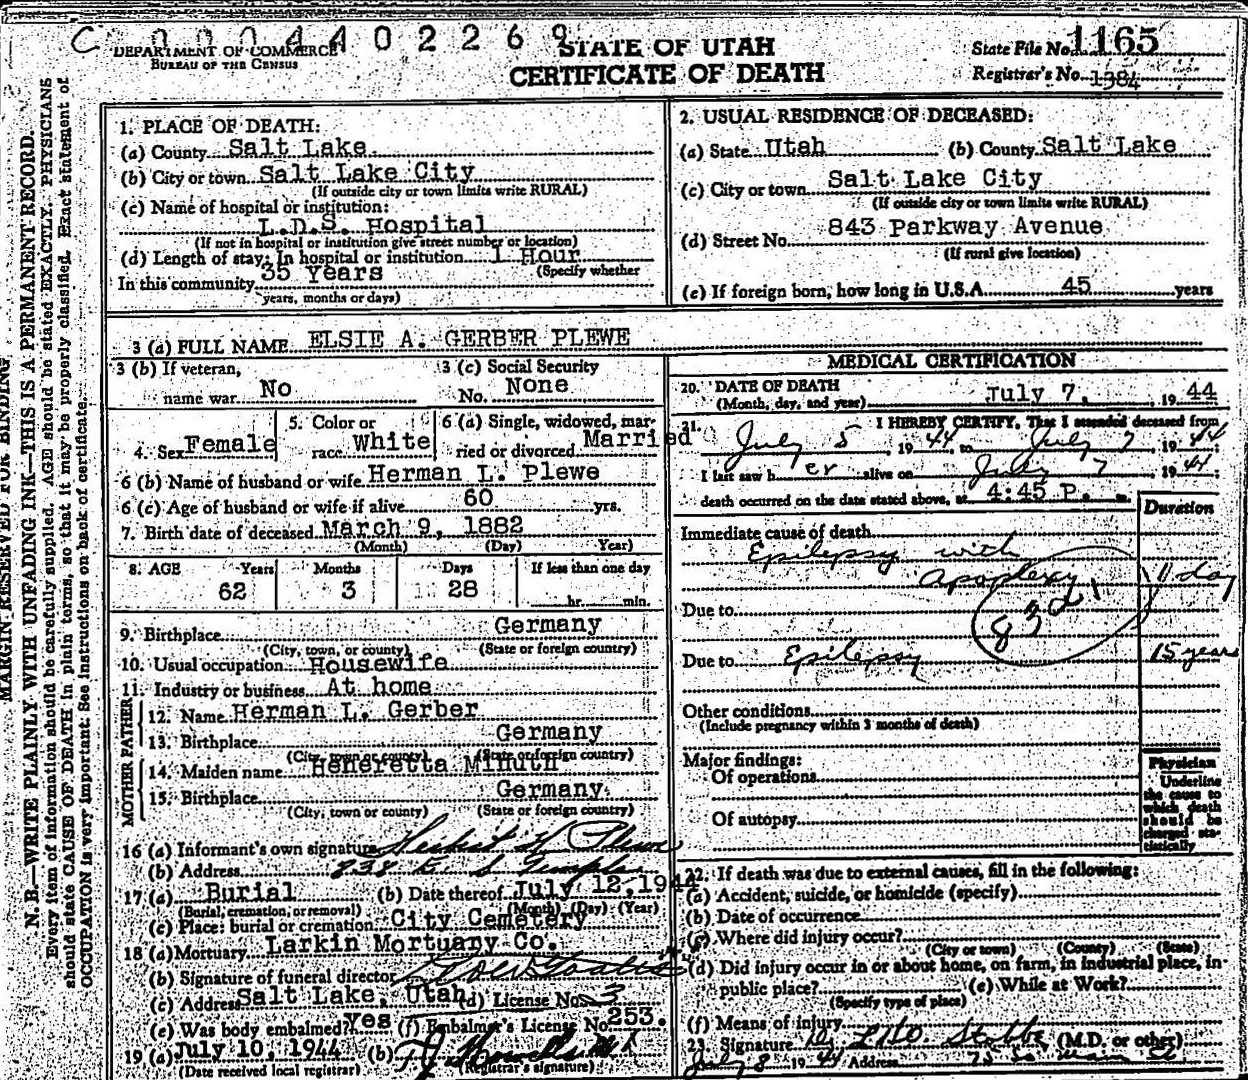 C 0 0 0 4 4 0 2 2 6 9
DEPARTMENT OF COMMERCE
BUREAU OF THE CENSUS
STATE OF UTAH
CERTIFICATE OF DEATH
State File No. 1165
Registrar's No. 1384
MARGIN RESERVED FOR BINDING
N. B.—WRITE PLAINLY WITH UNFADING INK—THIS IS A PERMANENT RECORD.
Every item of information should be carefully supplied. AGE should be stated EXACTLY. PHYSICIANS
should state CAUSE OF DEATH in plain terms, so that it may be properly classified. Exact statement of
OCCUPATION is very important. See instructions on back of certificate.
1. PLACE OF DEATH:
(a) County Salt Lake
(b) City or town Salt Lake City
(If outside city or town limits write RURAL)
(c) Name of hospital or institution:
L.D.S. Hospital
(If not in hospital or institution give street number or location)
(d) Length of stay: In hospital or institution 1 Hour
(Specify whether
In this community 35 Years
years, months or days)
2. USUAL RESIDENCE OF DECEASED:
(a) State Utah (b) County Salt Lake
(c) City or town Salt Lake City
(If outside city or town limits write RURAL)
(d) Street No. 843 Parkway Avenue
(If rural give location)
(e) If foreign born, how long in U.S.A. 45 years
3 (a) FULL NAME ELSIE A. GERBER PLEWE
3 (b) If veteran,
name war No
3 (c) Social Security
No. None
4. Sex Female
5. Color or
race White
6 (a) Single, widowed, mar-
ried or divorced Married
6 (b) Name of husband or wife Herman L. Plewe
6 (c) Age of husband or wife if alive 60 yrs.
7. Birth date of deceased March 9, 1882
(Month) (Day) Year)
8. AGE Years Months Days If less than one day
62 3 28 hr. min.
9. Birthplace Germany
(City, town, or county) (State or foreign country)
10. Usual occupation Housewife
11. Industry or business At home
MOTHER FATHER
12. Name Herman L. Gerber
13. Birthplace Germany
(City, town or county) (State or foreign country)
14. Maiden name Heneretta Minuth
15. Birthplace Germany
(City, town or county) (State or foreign country)
16 (a) Informant's own signature
(b) Address 938 E. S Temple
17 (a) Burial (b) Date thereof July 12, 1944
(Burial, cremation, or removal) (Month) (Day) (Year)
(c) Place: burial or cremation City Cemetery
18 (a) Mortuary Larkin Mortuary Co.
(b) Signature of funeral director
(c) Address Salt Lake, Utah (d) License No. 3
(e) Was body embalmed? yes (f) Embalmer's License No. 253.
19 (a) July 10, 1944 (b)
(Date received local registrar) (Registrar's signature)
MEDICAL CERTIFICATION
20. DATE OF DEATH
(Month, day, and year) July 7, 19 44
21. I HEREBY CERTIFY, That I attended deceased from
July 5, 19 44, to July 7, 19 44
I last saw h er alive on July 7 19 44;
death occurred on the date stated above, at 4:45 P. m.
Duration
Immediate cause of death
Epilepsy with
apoplexy 1 day
Due to 83d1
Due to Epilepsy 15 years
Other conditions
(Include pregnancy within 3 months of death)
Major findings:
Of operations
Of autopsy
Physician
Underline
the cause to
which death
should be
charged sta-
tistically
22. If death was due to external causes, fill in the following:
(a) Accident, suicide, or homicide (specify)
(b) Date of occurrence
(c) Where did injury occur?
(City or town) (County) (State)
(d) Did injury occur in or about home, on farm, in industrial place, in
public place? (e) While at Work?
(Specify type of place)
(f) Means of injury
23. Signature (M.D. or other)
July 8 19 44 Address 75 So. Main St